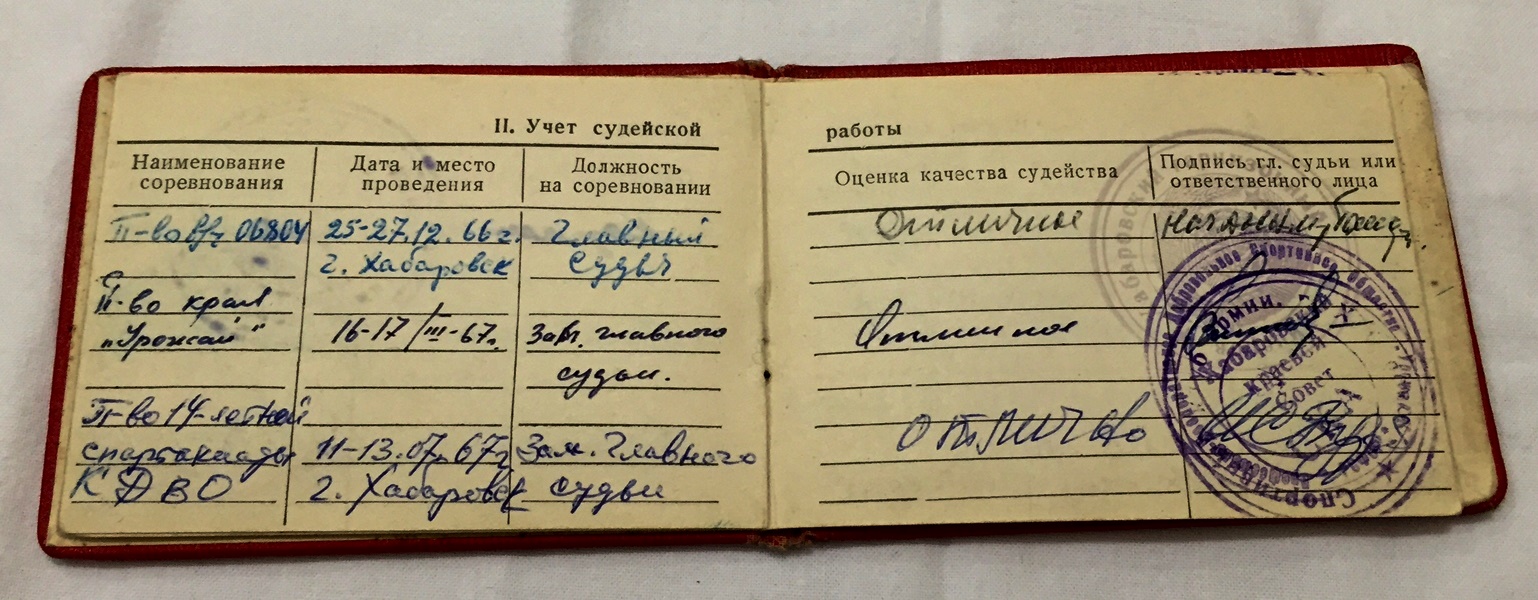 II. Учет судейской работы
Наименование соревнования
Дата и место проведения
Должность на соревновании
Оценка качества судейства
Подпись гл. судьи или ответственного лица
П-во в/ч 06804
25-27.12.66 г.
г. Хабаровск
Главный
судья
Отличное
П-во края
"Урожай"
16-17/III-67г.
Зам. главного
судьи.
Отличное
П-во 14-летней
спартакиады
КДВО
11-13.07.67г
г. Хабаровск
Зам. Главного
судьи
отлично
Добровольное Спортивное Общество
Хабаровский
краевой
Совет